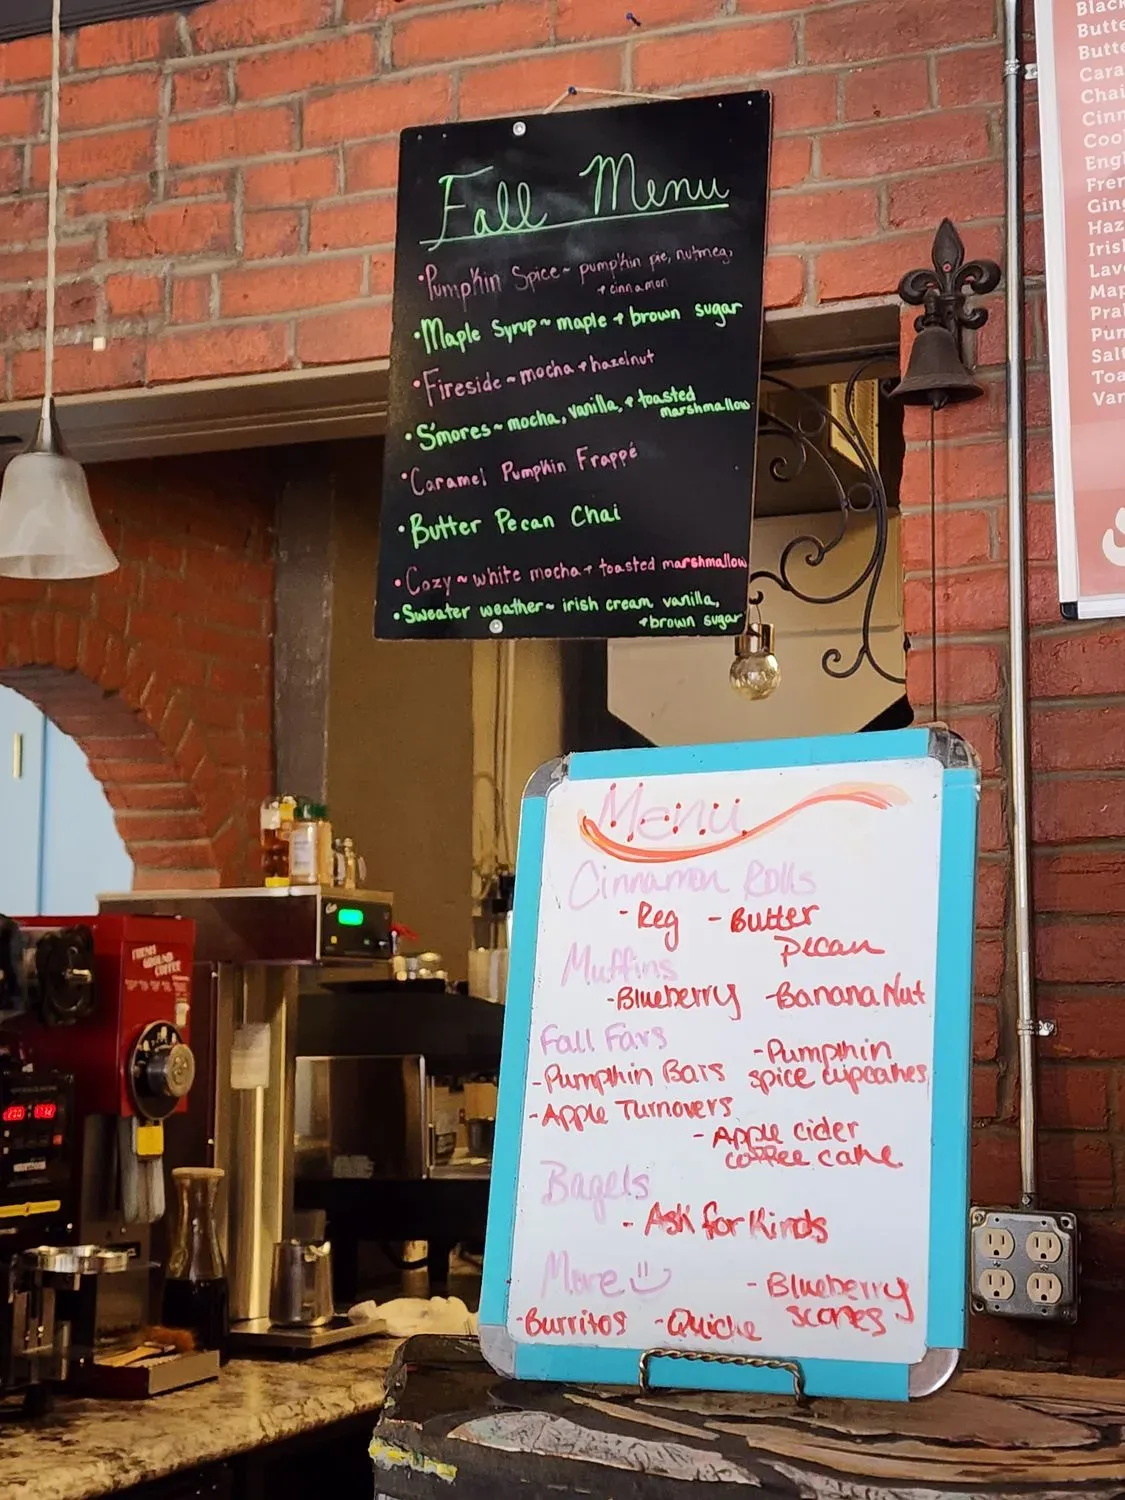 Fall Menu
•Pumpkin Spice~ pumpkin pie, nutmeg,
+ cinnamon
•Maple Syrup~ maple + brown sugar
•Fireside~mocha + hazelnut
•S'mores~mocha, vanilla, + toasted
marshmallow
•Caramel Pumpkin Frappé
•Butter Pecan Chai
•Cozy~white mocha + toasted marshmallow
•Sweater weather~ irish cream vanilla,
+brown sugar
Menu
Cinnamon Rolls
-Reg -Butter
Pecan
Muffins
-Blueberry -Banana Nut
Fall Favs
-Pumpkin
-Pumpkin Bars spice cupcakes
-Apple Turnovers
-Apple cider
coffee cake
Bagels
-Ask for Kinds
More
-Blueberry
-Burritos -Quiche scones
FRESH
GROUND
COFFEE
Black
Butte
Butte
Cara
Chai
Cinn
Coo
Engl
Fren
Ging
Haz
Irish
Lave
Map
Pral
Pun
Salt
Toa
Van